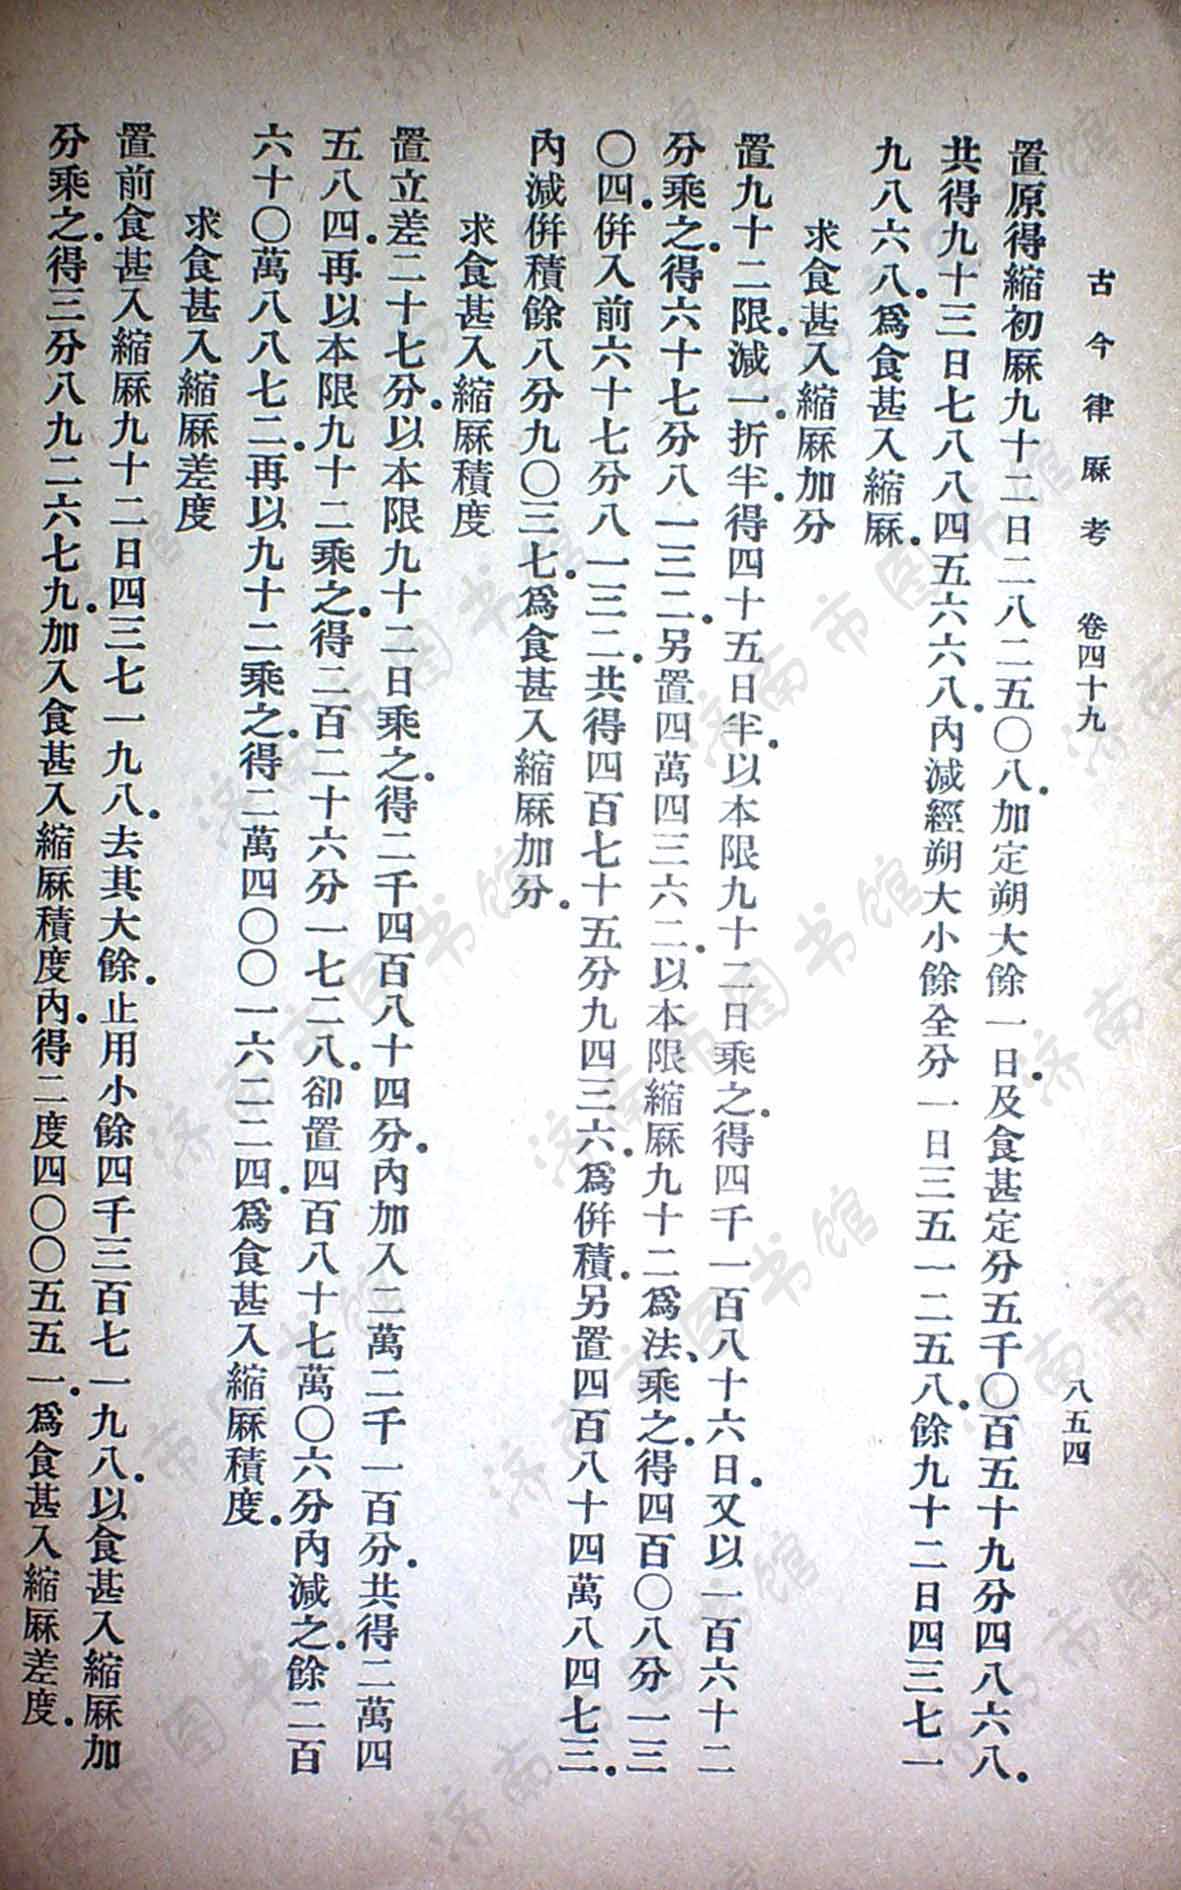 古今律厤考　卷四十九　八五四
置原得縮初厤九十二日二八二五〇八加定朔大餘一日及食甚定分五千〇百五十九分四八六八
共得九十三日七八八四五六六八內減經朔大小餘全分一日三五一二五八餘九十二日四三七一
九八六八爲食甚入縮厤
求食甚入縮厤加分
置九十二限減一折半得四十五日半以本限九十二日乘之得四千一百八十六日又以一百六十二
分乘之得六十七分八一三二另置四萬四三六二以本限縮厤九十二爲法乘之得四百〇八分一三
〇四倂入前六十七分八一三二共得四百七十五分九四三六爲倂積另置四百八十四萬八四七三
內減倂積餘八分九〇三七爲食甚入縮厤加分
求食甚入縮厤積度
置立差二十七分以本限九十二日乘之得二千四百八十四分內加入二萬二千一百分共得二萬四
五八四再以本限九十二乘之得二百二十六分一七二八卻置四百八十七萬〇六分內減之餘二百
六十〇萬八八七二再以九十二乘之得二萬四〇〇一六二二四爲食甚入縮厤積度
求食甚入縮厤差度
置前食甚入縮厤九十二日四三七一九八去其大餘止用小餘四千三百七一九八以食甚入縮厤加
分乘之得三分八九二六七九加入食甚入縮厤積度內得二度四〇〇五五一爲食甚入縮厤差度